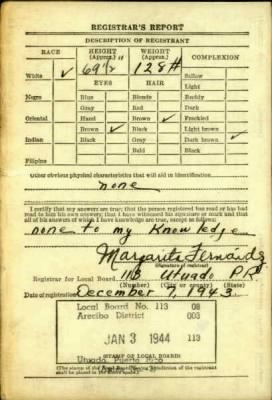 REGISTRAR'S REPORT
DESCRIPTION OF REGISTRANT
RACE HEIGHT (Approx.) WEIGHT (Approx.) COMPLEXION
69½" 128#
White ✓ Sallow
EYES HAIR Light
Negro Blue Blonde Ruddy
Gray Red Dark
Oriental Hazel Brown ✓ Freckled
Brown ✓ Black Light brown
Indian Black Gray Dark brown ✓
Bald Black
Filipino
Other obvious physical characteristics that will aid in identification
none
I certify that my answers are true; that the person registered has read or has had
read to him his own answers; that I have witnessed his signature or mark and that
all of his answers of which I have knowledge are true, except as follows:
none to my Knowledge
Margarita Fernández
(Signature of registrar)
Registrar for Local Board 113 Utuado P.R.
(Number) (City or county) (State)
Date of registration December 7, 1943.
Local Board No. 113 08
Arecibo District 003
JAN 3 1944 113
STAMP OF LOCAL BOARD
Utuado, Puerto Rico
(The stamp of the Local Board having jurisdiction of the registrant
shall be placed in the above space.)